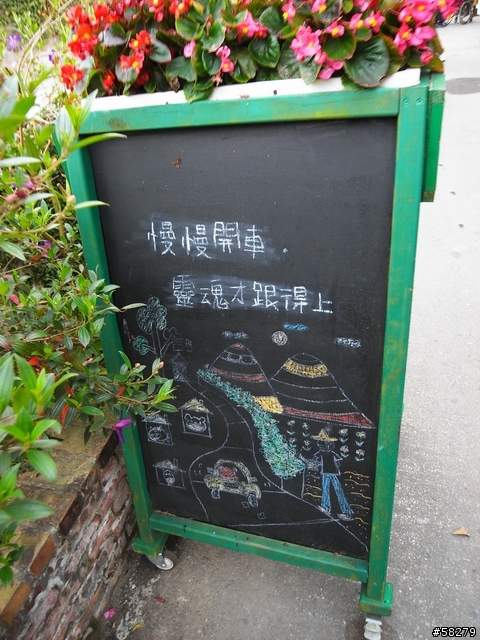 慢慢開車.
靈魂才跟得上
#58279